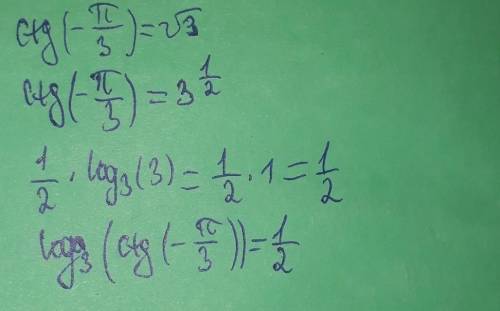 ctg(-π/3)=√3
ctg(-π/3)=3^1/2
1/2 · log₃(3)=1/2 · 1=1/2
log₃(ctg(-π/3))=1/2